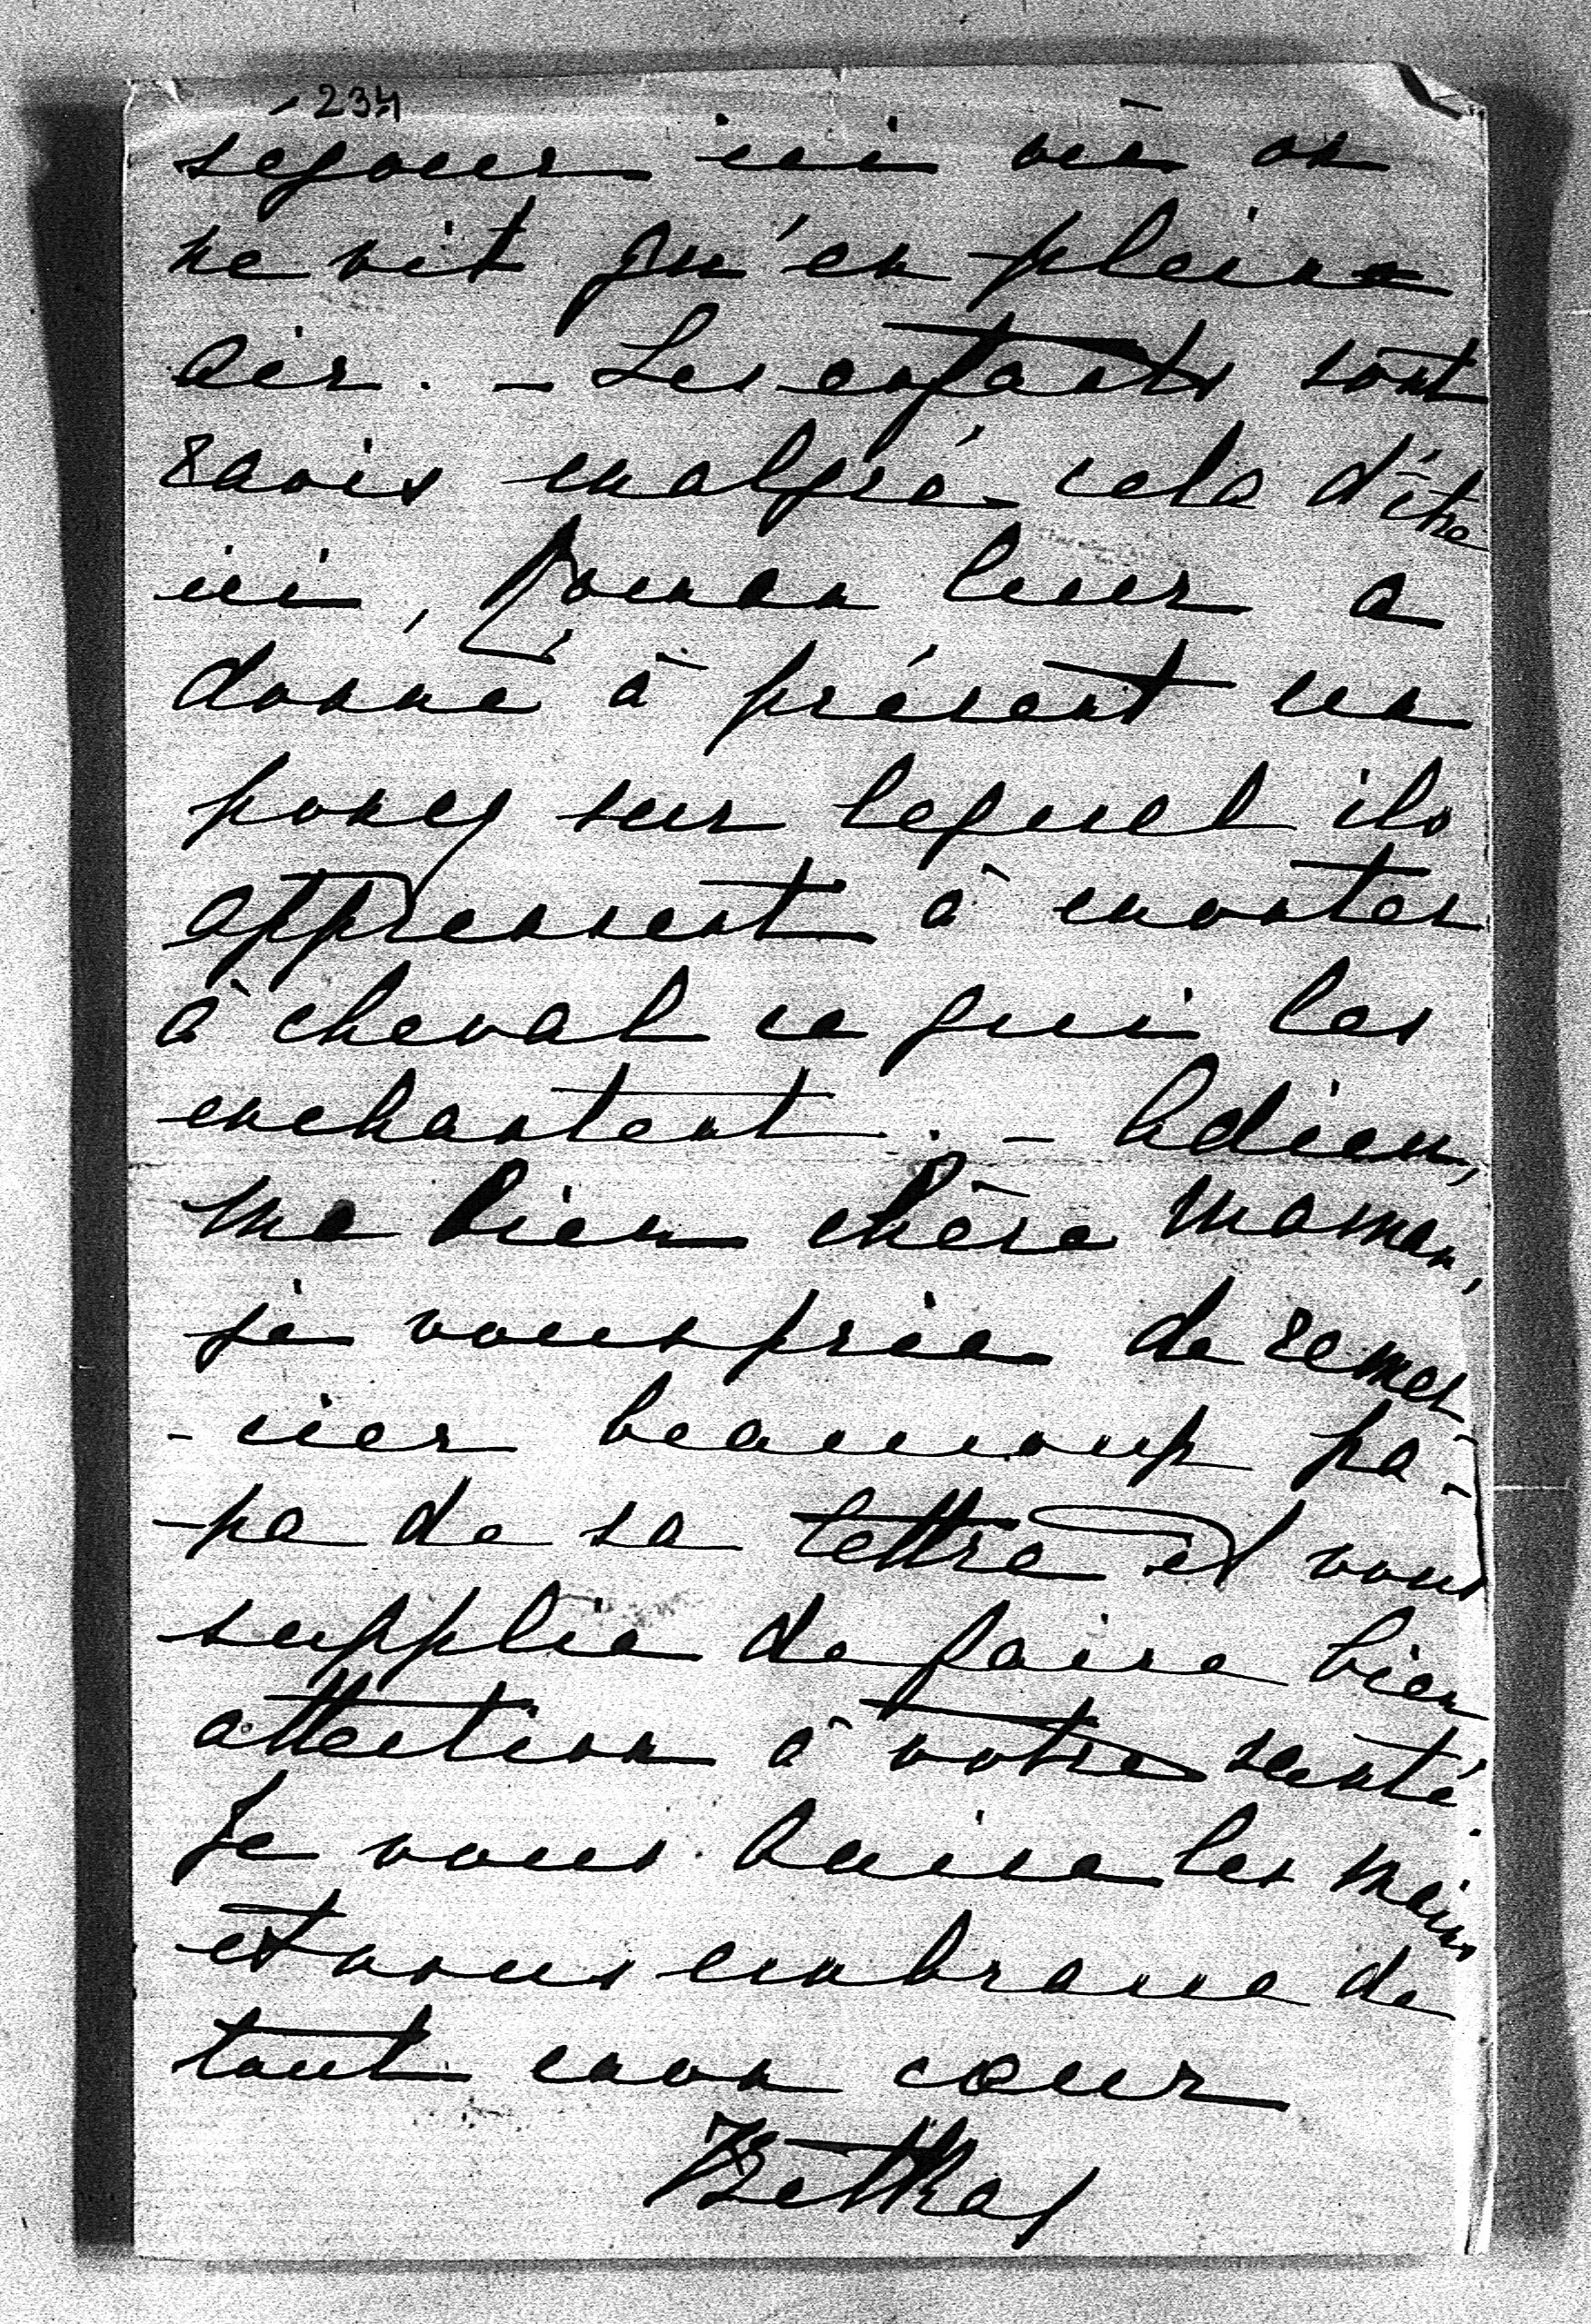 234
séjour ici où on
ne vit qu'en pleine
air. - Les enfants sont
ravis malgré cela d'être
ici, Roman leur a
donné à présent un
poney sur lequel ils
apprennent à monter
à cheval ce qui les
enchantent. - Adieu,
ma bien chère maman,
je vous prie de remer
-cier beaucoup pa-
-pa de sa lettre et vous
supplie de faire bien
attention à votre santé
Je vous baise les mains
et vous embrasse de
tout mon cœur
Betka